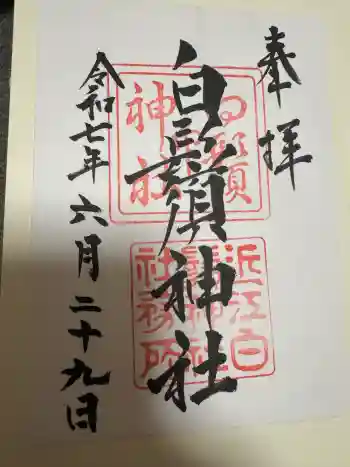 奉拝
白鬚神社
令和七年六月二十九日
白鬚神社
近江白鬚神社社務所